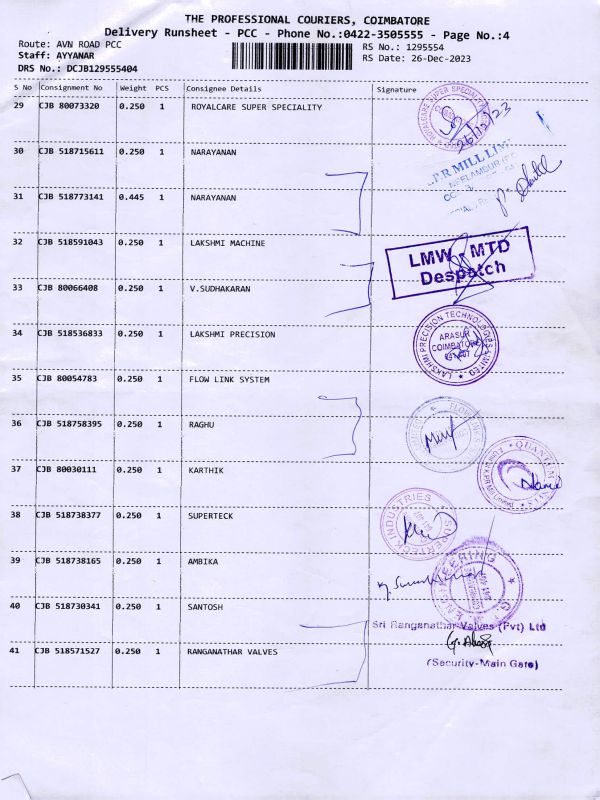 THE PROFESSIONAL COURIERS, COIMBATORE
Delivery Runsheet - PCC - Phone No.:0422-3505555 - Page No.:4
Route: AVN ROAD PCC
RS No.: 1295554
Staff: AYYANAR
RS Date: 26-Dec-2023
DRS No.: DCJB129555404
S No Consignment No Weight PCS Consignee Details Signature
29 CJB 80073320 0.250 1 ROYALCARE SUPER SPECIALITY
26/12/23
30 CJB 518715611 0.250 1 NARAYANAN
MILL LIM
31 CJB 518773141 0.445 1 NARAYANAN
32 CJB 518591043 0.250 1 LAKSHMI MACHINE
LMW - MTD
Despatch
33 CJB 80066408 0.250 1 V.SUDHAKARAN
34 CJB 518536833 0.250 1 LAKSHMI PRECISION
LAKSHMI PRECISION TECHNOLOGIES LIMITED
ARASUR
COIMBATORE
35 CJB 80054783 0.250 1 FLOW LINK SYSTEM
36 CJB 518758395 0.250 1 RAGHU
37 CJB 80030111 0.250 1 KARTHIK
38 CJB 518738377 0.250 1 SUPERTECK
SUPERTECK INDUSTRIES
39 CJB 518738165 0.250 1 AMBIKA
40 CJB 518730341 0.250 1 SANTOSH
Sri Ranganathar Valves (Pvt) Ltd
41 CJB 518571527 0.250 1 RANGANATHAR VALVES
(Security-Main Gate)